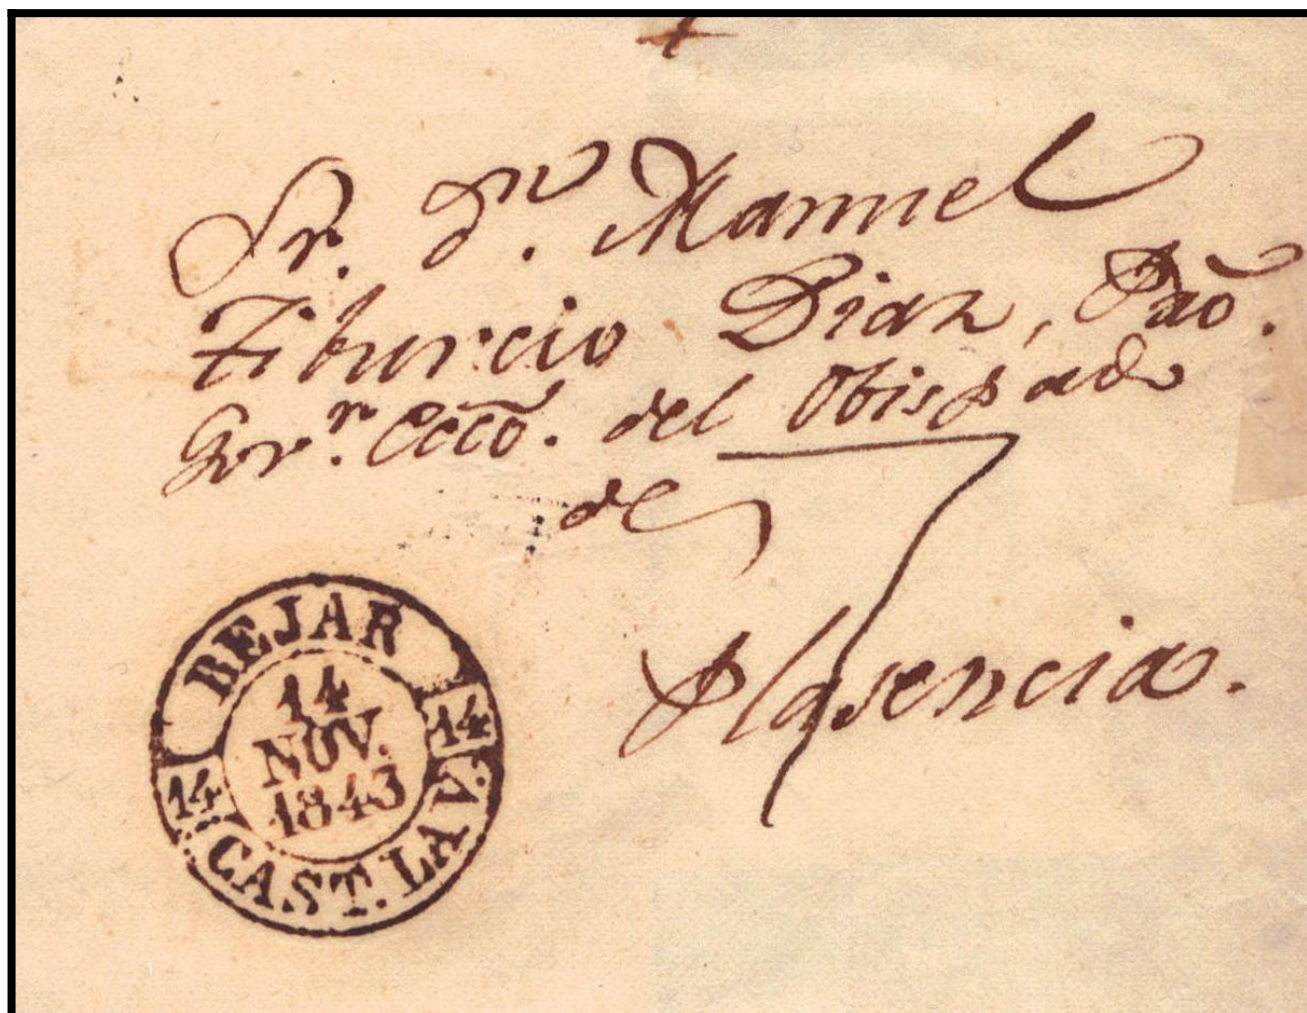 Sr. Dn. Manuel
Tiburcio Diaz, Pño.
Govr. Ecco. del Obispado
de
Plasencia.
BEJAR
14
NOV.
1843
14
14
CAST. LA V.